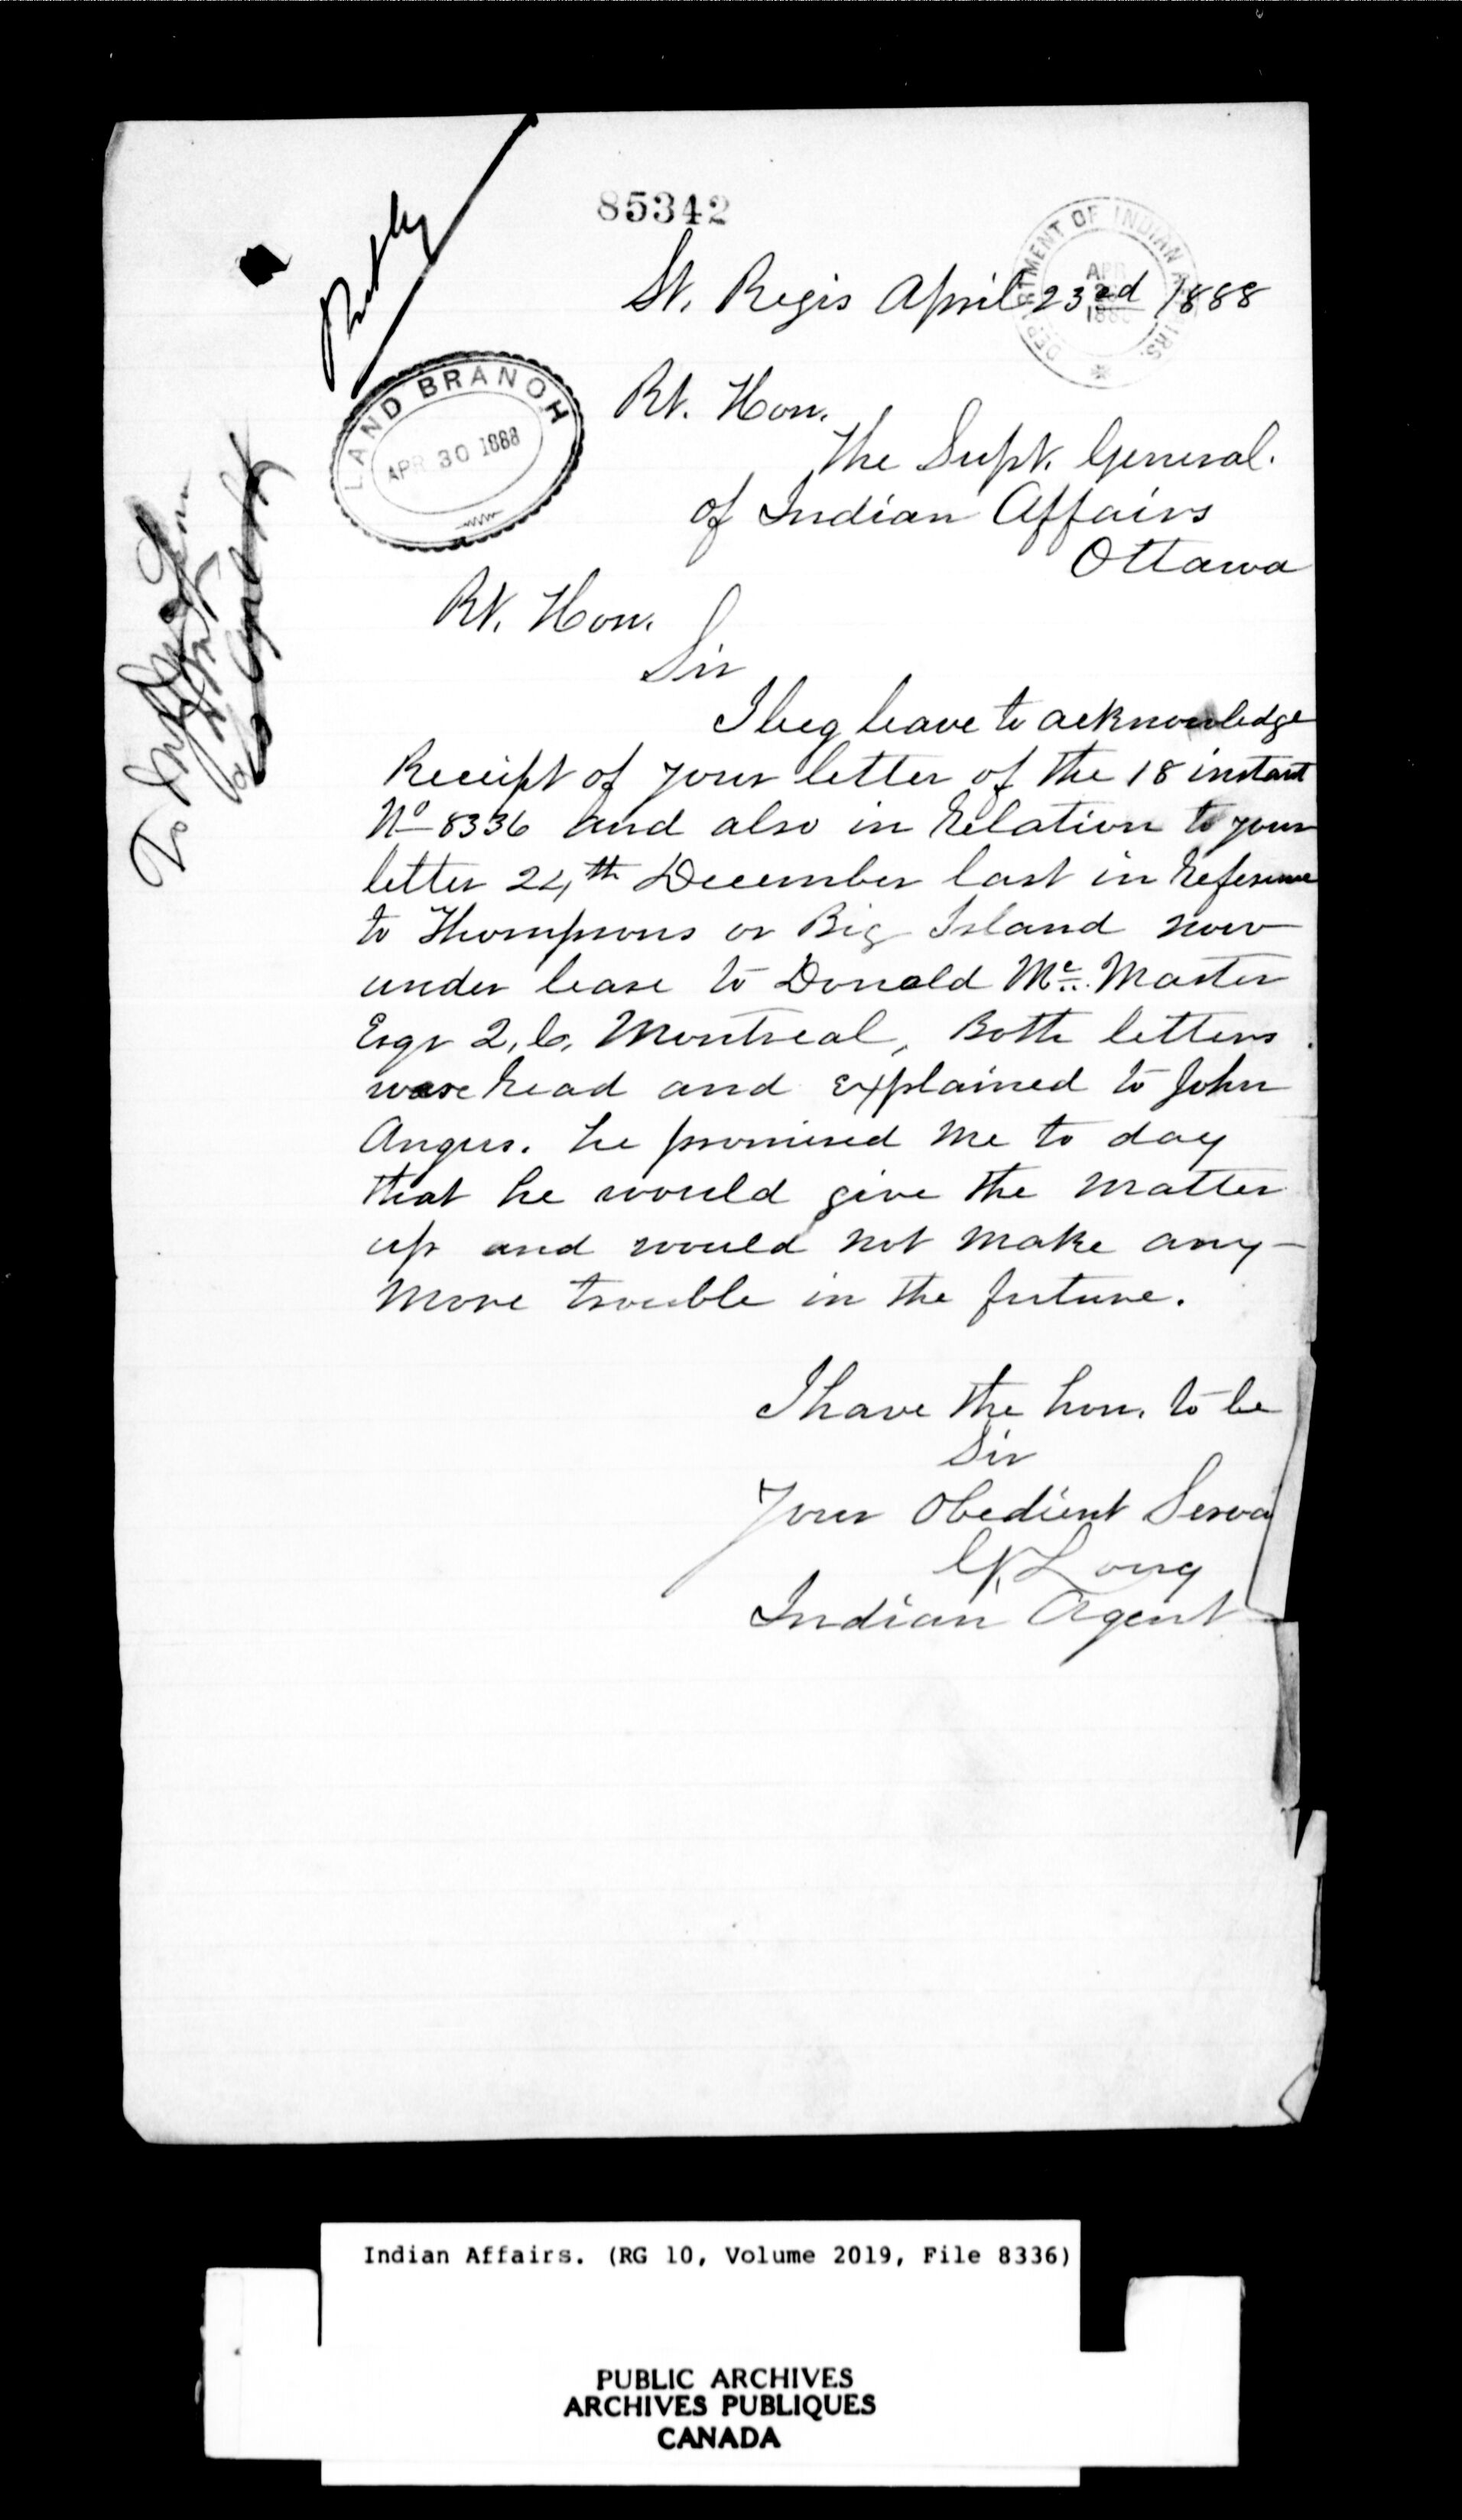 85342
DEPARTMENT OF INDIAN AFFAIRS.
APR
188
St. Regis April 23rd 1888
LAND BRANCH
APR 30 1888
Rt. Hon.
The Supt. General.
of Indian Affairs
Ottawa
Rt. Hon.
Sir
I beg leave to acknowledge
Receipt of your letter of the 18 instant
No 8336 and also in Relation to your
letter 24th December last in Reference
to Thompsons or Big Island now
under lease to Donald Mc. Master
Esqr Q, C, Montreal, Both letters
ware Read and Explained to John
Angus. he promised me to day
that he would give the matter
up and would not make any-
more trouble in the future.
I have the hon. to be
Sir
Your Obedient Serva
Long
Indian Agent
To
Indian Affairs. (RG 10, Volume 2019, File 8336)
PUBLIC ARCHIVES
ARCHIVES PUBLIQUES
CANADA